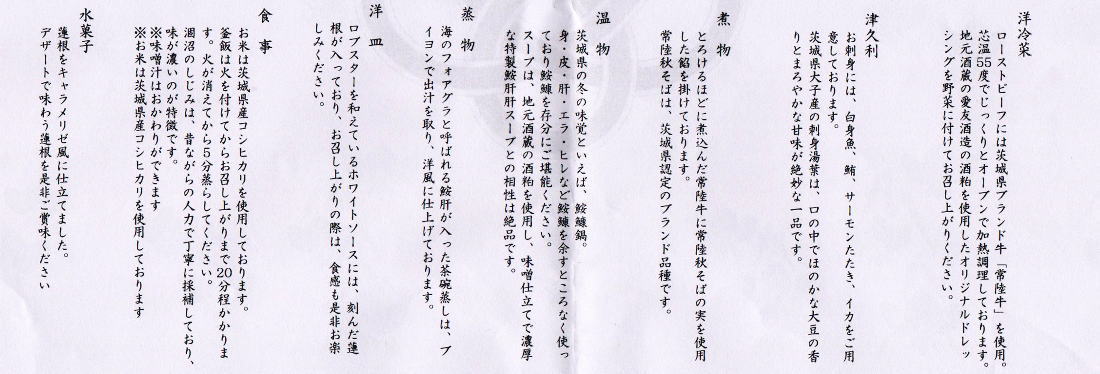 洋冷菜
ローストビーフには茨城県ブランド牛「常陸牛」を使用。
芯温55度でじっくりとオーブンで加熱調理しております。
地元酒蔵の愛友酒造の酒粕を使用したオリジナルドレッ
シングを野菜に付けてお召し上がりください。
津久利
お刺身には、白身魚、鮪、サーモンたたき、イカをご用
意しております。
茨城県大子産の刺身湯葉は、口の中でほのかな大豆の香
りとまろやかな甘味が絶妙な一品です。
煮 物
とろけるほどに煮込んだ常陸牛に常陸秋そばの実を使用
した餡を掛けております。
常陸秋そばは、茨城県認定のブランド品種です。
温 物
茨城県の冬の味覚といえば、鮟鱇鍋。
身・皮・肝・エラ・ヒレなど鮟鱇を余すところなく使っ
ており鮟鱇を存分にご堪能ください。
スープは、地元酒蔵の酒粕を使用し、味噌仕立てで濃厚
な特製鮟鱇肝スープとの相性は絶品です。
蒸 物
海のフォアグラと呼ばれる鮟肝が入った茶碗蒸しは、ブ
イヨンで出汁を取り、洋風に仕上げております。
洋 皿
ロブスターを和えているホワイトソースには、刻んだ蓮
根が入っており、お召し上がりの際は、食感も是非お楽
しみください。
食 事
お米は茨城県産コシヒカリを使用しております。
釜飯は火を付けてからお召し上がりまで20分程かかりま
す。火が消えてから5分蒸らしてください。
涸沼のしじみは、昔ながらの人力で丁寧に採補しており、
味が濃いのが特徴です。
※味噌汁はおかわりができます
※お米は茨城県産コシヒカリを使用しております
水菓子
蓮根をキャラメリゼ風に仕立てました。
デザートで味わう蓮根を是非ご賞味ください